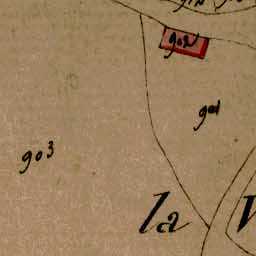 902
901
903
la